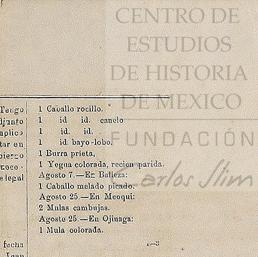 CENTRO DE
ESTUDIOS
DE HISTORIA
DE MEXICO
FUNDACIÓN
Carlos Slim
Tengo
djunto
aplico
tar en
bierzo
legal
fecha
1 Caballo rocillo.
1 id id. canelo
1 id. id.
1 id bayo-lobo.
1 Burra prieta,
1 Yegua colorada, recien parida.
Agosto 7.—En Balleza:
1 Caballo melado picado.
Agosto 25.—En Meoqui:
2 Mulas cambujas.
Agosto 25.—En Ojinaga:
1 Mula colorada.
3